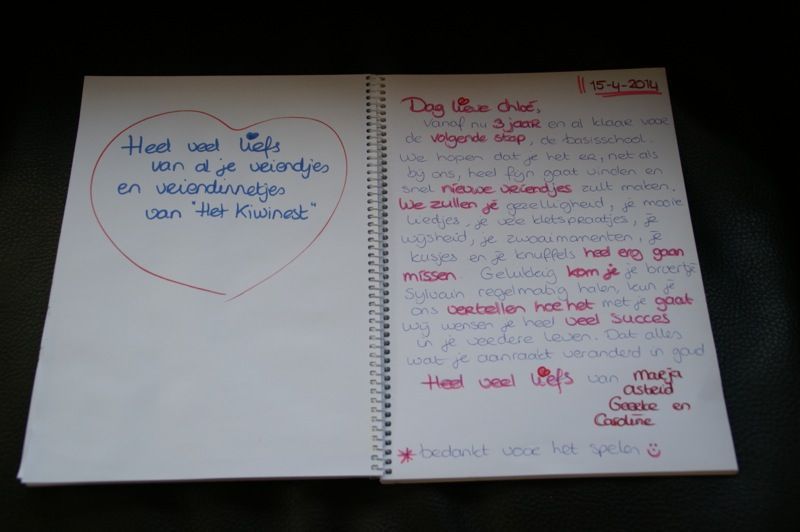 Heel veel liefs
van al je vriendjes
en vriendinnetjes
van "Het Kiwinest"
15-4-2014
Dag lieve Chloé,
vanaf nu 3 jaar en al klaar voor
de volgende stap, de basisschool.
We hopen dat je het er, net als
bij ons, heel fijn gaat vinden en
snel nieuwe vriendjes zult maken.
We zullen je gezelligheid, je mooie
liedjes, je vele kletspraatjes, je
wijsheid, je zwaaimomenten, je
kusjes en je knuffels heel erg gaan
missen. Gelukkig kom je je broertje
Sylvain regelmatig halen, kun je
ons vertellen hoe het met je gaat
Wij wensen je heel veel succes
in je verdere leven. Dat alles
wat je aanraakt veranderd in goud
Heel veel liefs van Marja
Astrid
en
Caroline
* bedankt voor het spelen